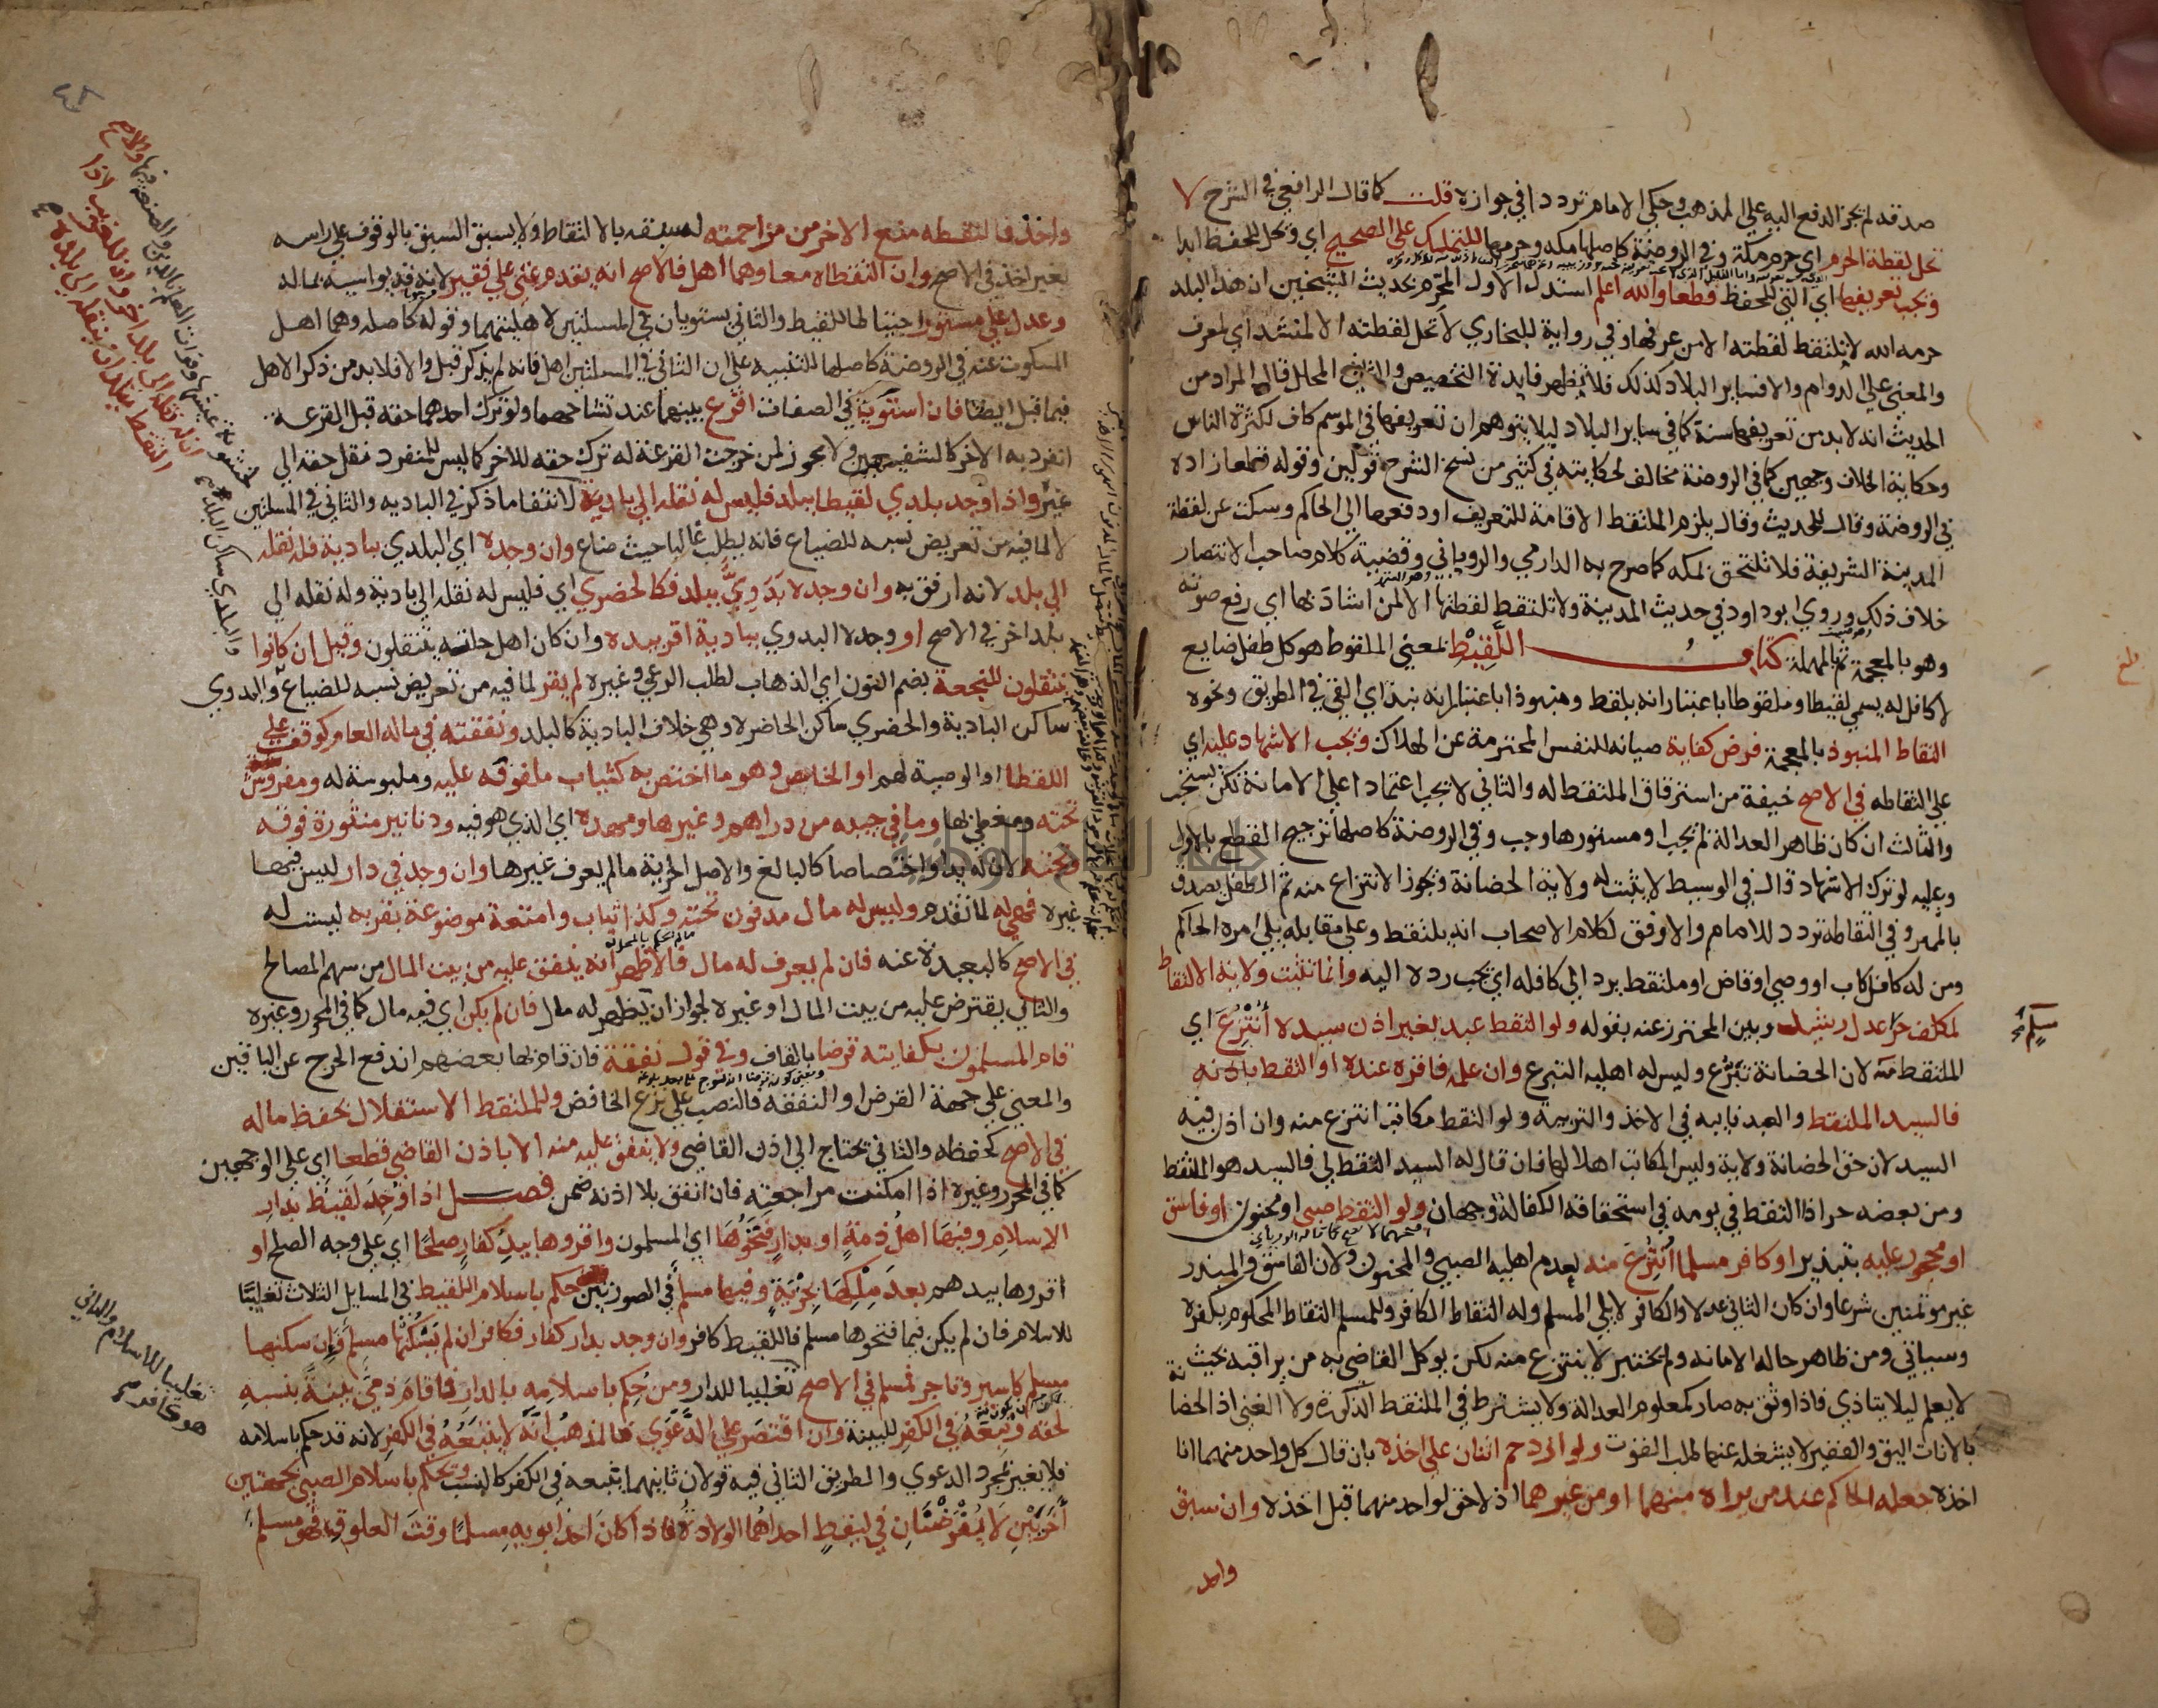 صدقه لم يجز الدفع اليه علي المذهب وحكي الامام ترددا في جوازه قلت كما قال الرافعي في الشرح لا
تحل لقطة الحرم اي حرم مكة وفي الروضة كاصلها مكه وحرمها للتملك علي الصحيح اي وتحل للحفظ ابدا
وتجب تعريفها اي التي للحفظ قطعا والله اعلم استدل الاول المحرم بحديث الشيخين ان هذا البلد
حرمه الله لا يلتقط لقطته الا من عرفها وفي رواية للبخاري لا تحل لقطته الا لمنشد اي لمعرف
والمعني علي الدوام والا فساير البلاد كذلك فلا يظهر فايدة التخصيص والثاني المحلل قال المراد من
الحديث انه لا بد من تعريفها سنة كما في ساير البلاد ليلا يتوهم ان تعريفها في الموسم كاف لكثرة الناس
وحكاية الخلاف وجهين كما في الروضة مخالف لحكايته في كثير من نسخ الشرح قولين وقوله قطعا زاده
في الروضة وقال للحديث وقال يلزم الملتقط الاقامة للتعريف او دفعها الي الحاكم وسكت عن لقطة
المدينة الشريفة فلا تلتحق بمكه كما صرح به الدارمي والروياني وقضية كلام صاحب الانتصار
خلاف ذلك وروي ابو داود في حديث المدينة ولا تلتقط لقطتها الا لمن اشاد بها اي رفع صوته
وهو بالمعجمة ثم بالمهملة كتاب اللقيط بمعني الملقوط هو كل طفل ضايع
لا كافل له يسمي لقيطا وملقوطا باعتبار انه يلقط ومنبوذا باعتبار انه نبذ اي القي في الطريق ونحوه
التقاط المنبوذ بالمعجمة فرض كفاية صيانه للنفس المحترمة عن الهلاك وتجب الاشهاد عليه اي
علي التقاطه في الاصح خيفة من استرقاق الملتقط له والثاني لا يجب اعتمادا علي الامانة لكن يستحب
والثالث ان كان ظاهر العدالة لم يجب او مستورها وجب وفي الروضة كاصلها ترجيح القطع بالاول
وعليه لو ترك الاشهاد قال في الوسيط لا يثبت له ولاية الحضانة وتجوز الانتزاع منه ثم الطفل يصدق
بالمميز وفي التقاطه تردد للامام والاوفق لكلام الاصحاب انه يلتقط وعلي مقابله يلي امره الحاكم
ومن له كافل كاب او وصي او قاض او ملتقط يرد الي كافله اي يجب رده اليه وانما تثبت ولاية الالتقاط
لمكلف حر عدل رشيد وبين المحترز عنه بقوله ولو التقط عبد بغير اذن سيده انتزع اي
الملتقط منه لان الحضانة تبرع وليس له اهليه التبرع وان علمه فاقره عنده او التقط باذنه
فالسيد الملتقط والعبد نايبه في الاخذ والتربية ولو التقط مكاتب انتزع منه وان اذن فيه
السيد لان حق الحضانة ولاية وليس المكاتب اهلا لها فان قال له السيد التقط لي فالسيد هو الملتقط
ومن بعضه حر اذا التقط في يومه في استحقاقه الكفالة وجهان ولو التقط صبي او مجنون او فاسق
او محجور عليه بتبذير او كافر مسلما انتزع منه لعدم اهليه الصبي والمجنون ولان الفاسق والمبذر
غير موتمنين شرعا وان كان الثاني عدلا والكافر لا يلي المسلم وله التقاط الكافر وللمسلم التقاط المحكوم بكفره
وسياتي ومن ظاهر حاله الامانه ولم يختبر لا ينتزع منه لكن يوكل القاضي به من يراقبه بحيث
لا يعلم ليلا يتاذي فاذا وثق به صار كمعلوم العدالة ولا يشترط في الملتقط الذكورة ولا الغني اذ الحضا نة
بالاناث اليق والفقير لا يشغله عنها طلب القوت ولو ازدحم اثنان علي اخذه بان قال كل واحد منهما انا
اخذه جعله الحاكم عند من يراه منهما او من غيرهما اذ لا حق لواحد منهما قبل اخذه وان سبق
واحد
واخذ فالتقطه منع الاخر من مزاحمته لسبقه بالالتقاط ولا يسبق السبق بالوقوف علي راسه
بغير اخذ في الاصح وان التقطاه معا وهما اهل فالاصح انه يقدم غني علي فقير لانه قد يواسيه بماله
وعدل علي مستور احتياطا للقيط والثاني يستويان في المسلتين لاهليتهما وقوله كاصله وهما اهل
المسكوت عنه في الروضة كاصلها للتنبيه علي ان الثاني في المسلتين اهل فانه لم يذكر قبل والا فلا بد من ذكر الاهل
فيما قبل ايضا فان استويا في الصفات اقرع بينهما عند تشاحهما ولو ترك احدهما حقه قبل القرعة
انفرد به الاخر كالشفيعين ولا يجوز لمن خرجت القرعة له ترك حقه للاخر كما ليس للمنفرد نقل حقه الي
غيره واذا وجد بلدي لقيطا ببلد فليس له نقله الي بادية لانتفا ما ذكر في الباديه والثاني في المسلتين
لا لما فيه من تعريض نسبه للضياع فانه يطلب غالبا حيث ضاع وان وجده اي البلدي ببادية فله نقله
الي بلد لانه ارفق به وان وجده بدوي ببلد فكالحضري اي فليس له نقله الي بادية وله نقله الي
بلد اخر في الاصح او وجده البدوي ببادية اقر بيده وان كان اهل حلته ينتقلون وقيل ان كانوا
ينتقلون للنجعة بضم النون اي الذهاب لطلب الرعي وغيره لم يقر لما فيه من تعريض نسبه للضياع والبدوي
ساكن البادية والحضري ساكن الحاضرة وهي خلاف البادية كالبلد ونفقته في ماله العام كوقف علي
اللقطا او الوصية لهم او الخاص وهو ما اختص به كثياب ملفوفه عليه وملبوسة له ومفروش
تحته ومغطي بها وما في جيبه من دراهم وغيرها ومهده اي الذي هو فيه ودنانير منثورة فوقه
وتحته لان له يدا واختصاصا كالبالغ والاصل الحرية ما لم يعرف غيرها وان وجد في دار ليس فيها
غيره فهي له لما تقدم وليس له مال مدفون تحته وكذا ثياب وامتعة موضوعة بقربه ليست له
في الاصح كالبعيدة عنه فان لم يعرف له مال فالاظهر انه ينفق عليه من بيت المال من سهم المصالح
والثاني يقترض عليه من بيت المال او غيره لجواز ان يظهر له مال فان لم يكن اي فيه مال كما في المحرر وغيره
قام المسلمون بكفايته قرضا بالقاف وفي قول نفقة فان قام بها بعضهم اندفع الحرج عن الباقين
والمعني علي جهة القرض او النفقه فالنصب علي نزع الخافض وللملتقط الاستقلال بحفظ ماله
في الاصح كحفظه والثاني تحتاج الي اذن القاضي ولا ينفق عليه منه الا باذن القاضي قطعا اي علي الوجهين
كما في المحرر وغيره اذا امكنت مراجعته فان انفق بلا اذنه ضمن فصل اذا وجد لقيط بدار
الاسلام وفيها اهل ذمة او بدار فتحوها اي المسلمون واقروها بيد كفار صلحا اي علي وجه الصلح او
اقروها بيدهم بعد ملكها بجزية وفيها مسلم في الصورتين حكم باسلام اللقيط في المسايل الثلاث تغليبا
للاسلام فان لم يكن فيما فتحوها مسلم فاللقيط كافر وان وجد بدار كفار فكافر ان لم يسكنها مسلم فان سكنها
مسلم كاسير وتاجر فمسلم في الاصح تغليبا للدار ومن حكم باسلامه بالدار فاقام ذمي بينة بنسبه
لحقه وتبعه في الكفر للبينة وان اقتصر علي الدعوي فالمذهب انه لا يتبعه في الكفر لانه قد حكم باسلامه
فلا يغير بمجرد الدعوي والطريق الثاني فيه قولان ثانيهما يتبعه في الكفر كالنسب وتحكم باسلام الصبي بجهتين
اخريين لا يفرضان في لقيط احداهما الولادة فاذا كان احد ابويه مسلما وقت العلوق فهو مسلم
تغليبا للاسلام والثاني
هو كافر